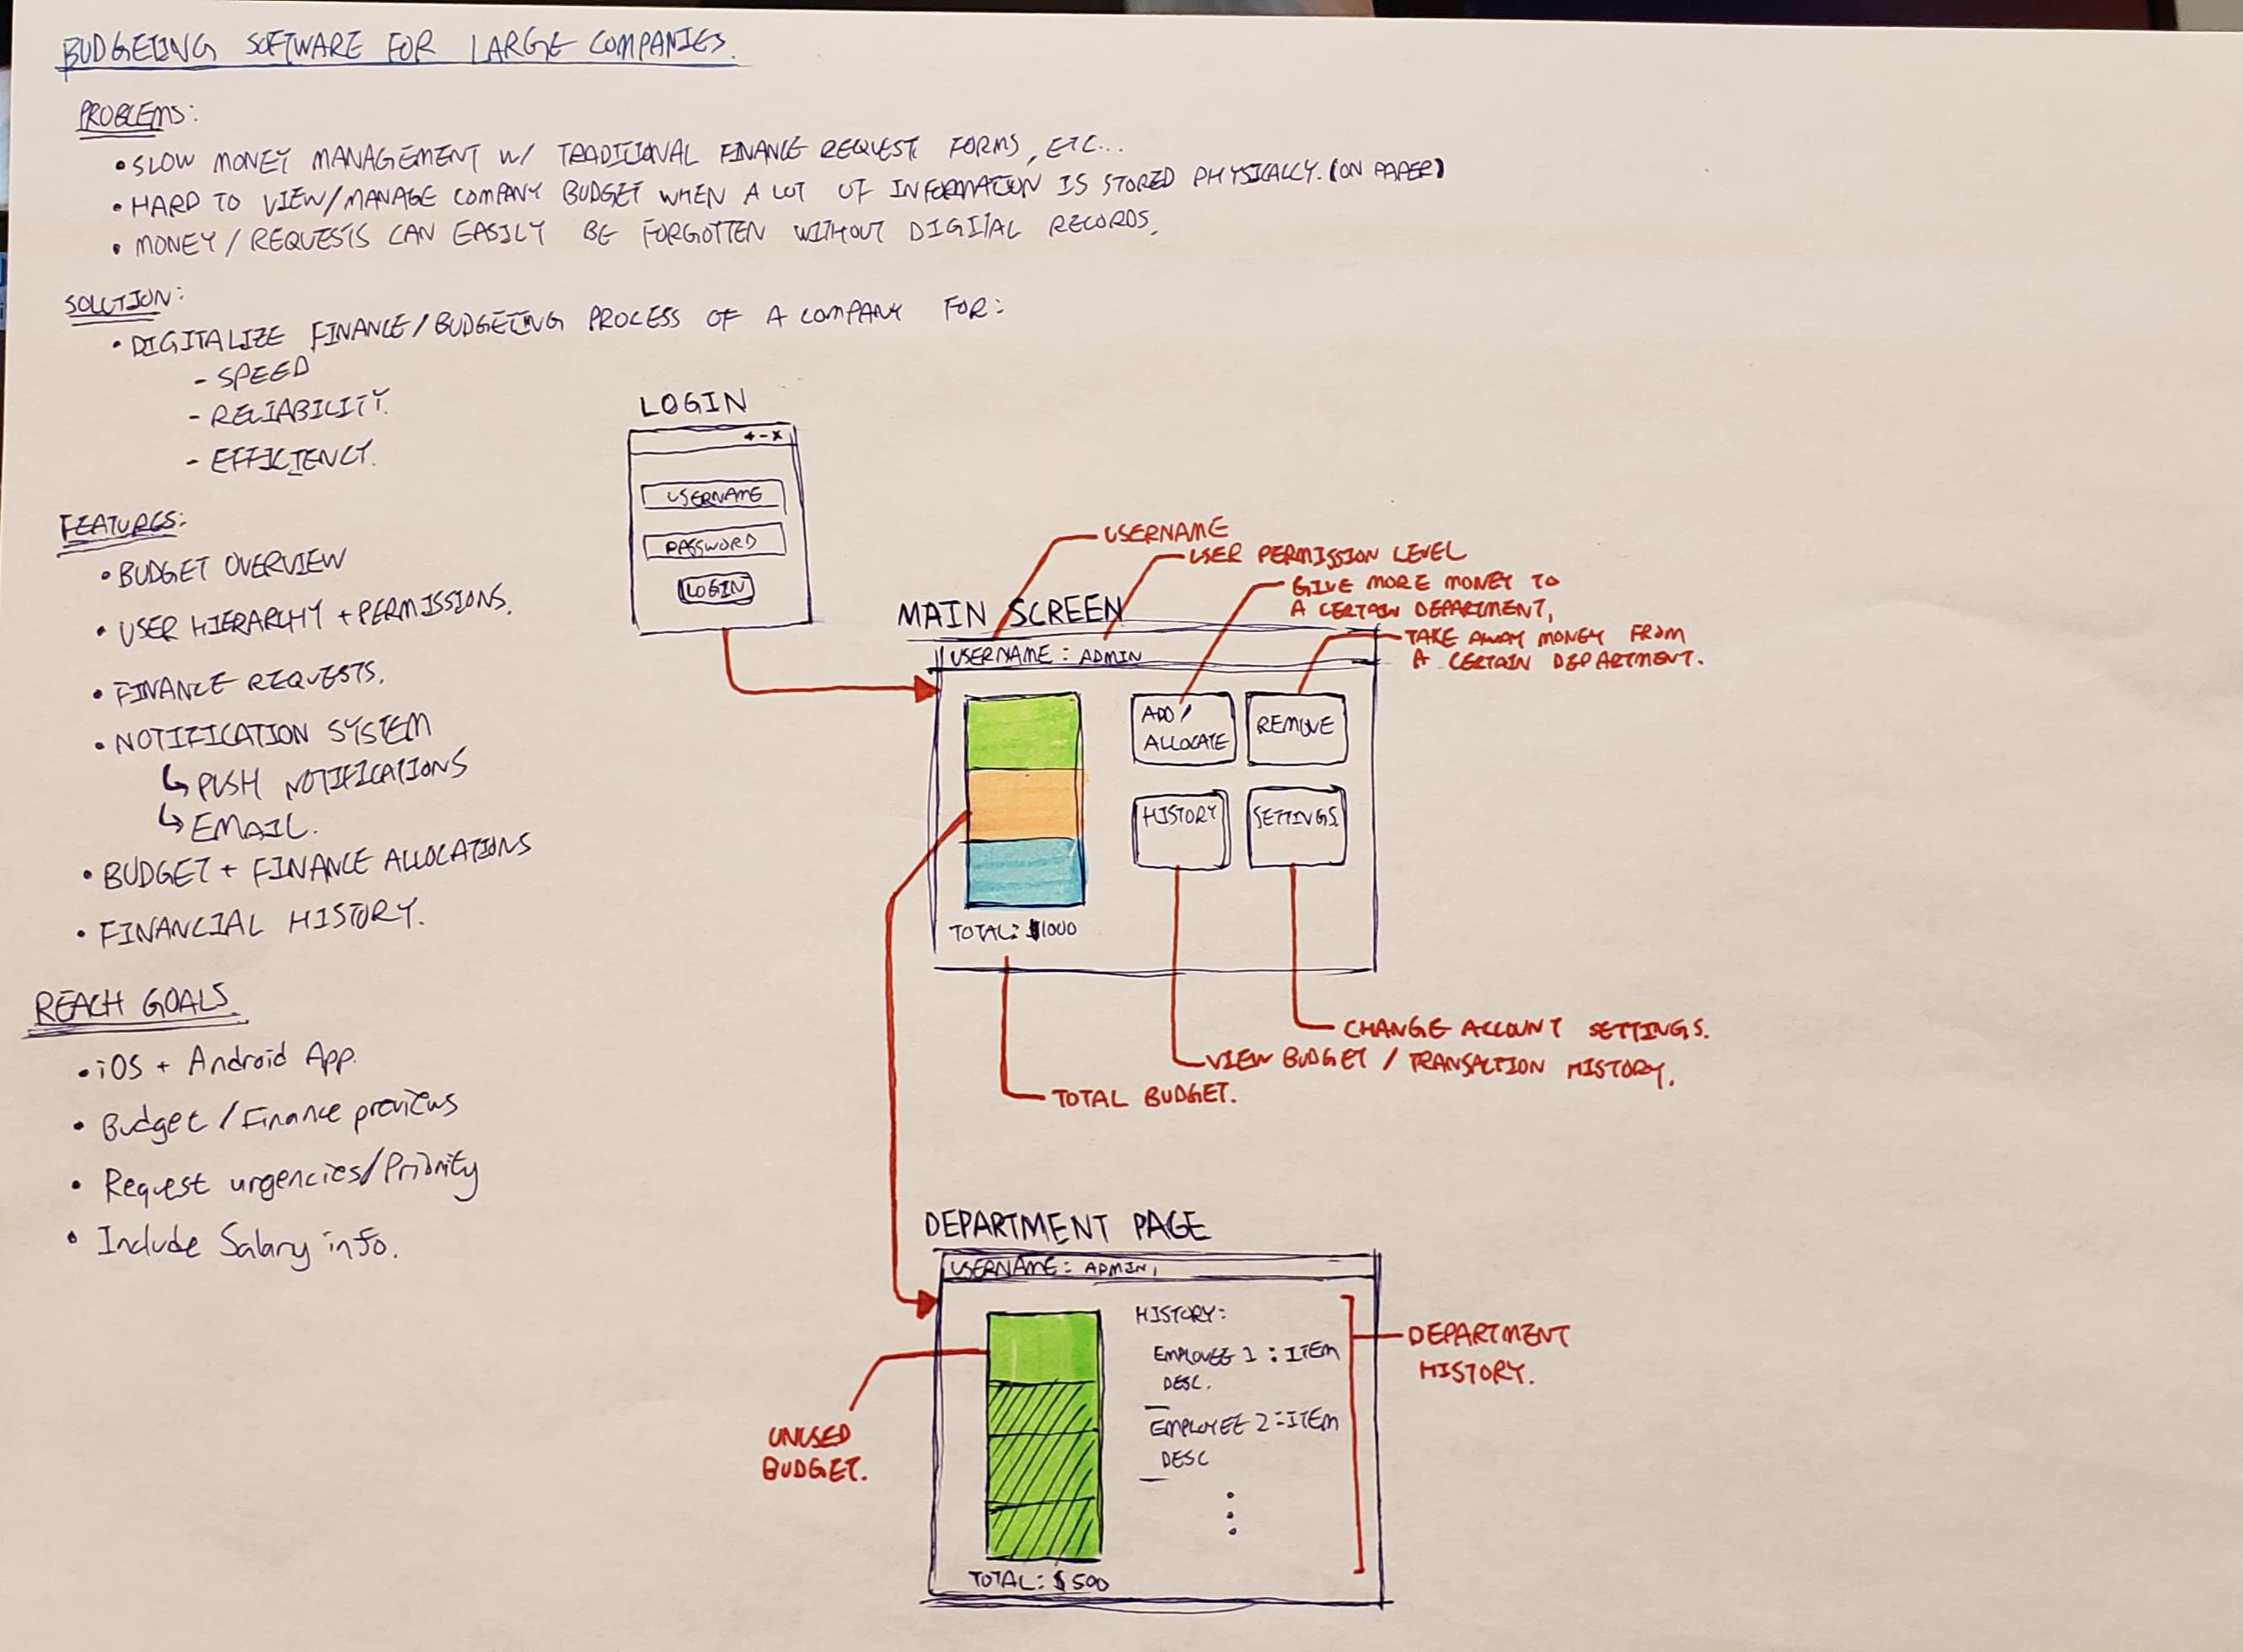 BUDGETING SOFTWARE FOR LARGE COMPANIES.
PROBLEMS:
• SLOW MONEY MANAGEMENT W/ TRADITIONAL FINANCE REQUEST FORMS, ETC...
• HARD TO VIEW/MANAGE COMPANY BUDGET WHEN A LOT OF INFORMATION IS STORED PHYSICALLY. (ON PAPER)
• MONEY / REQUESTS CAN EASILY BE FORGOTTEN WITHOUT DIGITAL RECORDS.
SOLUTION:
• DIGITALIZE FINANCE/BUDGETING PROCESS OF A COMPANY FOR:
- SPEED
- RELIABILITY.
- EFFICIENCY.
FEATURES:
• BUDGET OVERVIEW
• USER HIERARCHY + PERMISSIONS.
• FINANCE REQUESTS.
• NOTIFICATION SYSTEM
↳ PUSH NOTIFICATIONS
↳ EMAIL.
• BUDGET + FINANCE ALLOCATIONS
• FINANCIAL HISTORY.
REACH GOALS.
• iOS + Android App.
• Budget / Finance previews
• Request urgencies/Priority
• Include Salary info.
LOGIN
+ - x
USERNAME
PASSWORD
LOGIN
USERNAME
USER PERMISSION LEVEL
GIVE MORE MONEY TO
A CERTAIN DEPARTMENT,
TAKE AWAY MONEY FROM
A CERTAIN DEPARTMENT.
MAIN SCREEN
USERNAME : ADMIN
ADD /
ALLOCATE
REMOVE
HISTORY
SETTINGS
TOTAL: $1000
CHANGE ACCOUNT SETTINGS.
VIEW BUDGET / TRANSACTION HISTORY.
TOTAL BUDGET.
DEPARTMENT PAGE
USERNAME : ADMIN
HISTORY:
EMPLOYEE 1 : ITEM
DESC.
EMPLOYEE 2 : ITEM
DESC
TOTAL: $500
UNUSED
BUDGET.
DEPARTMENT
HISTORY.